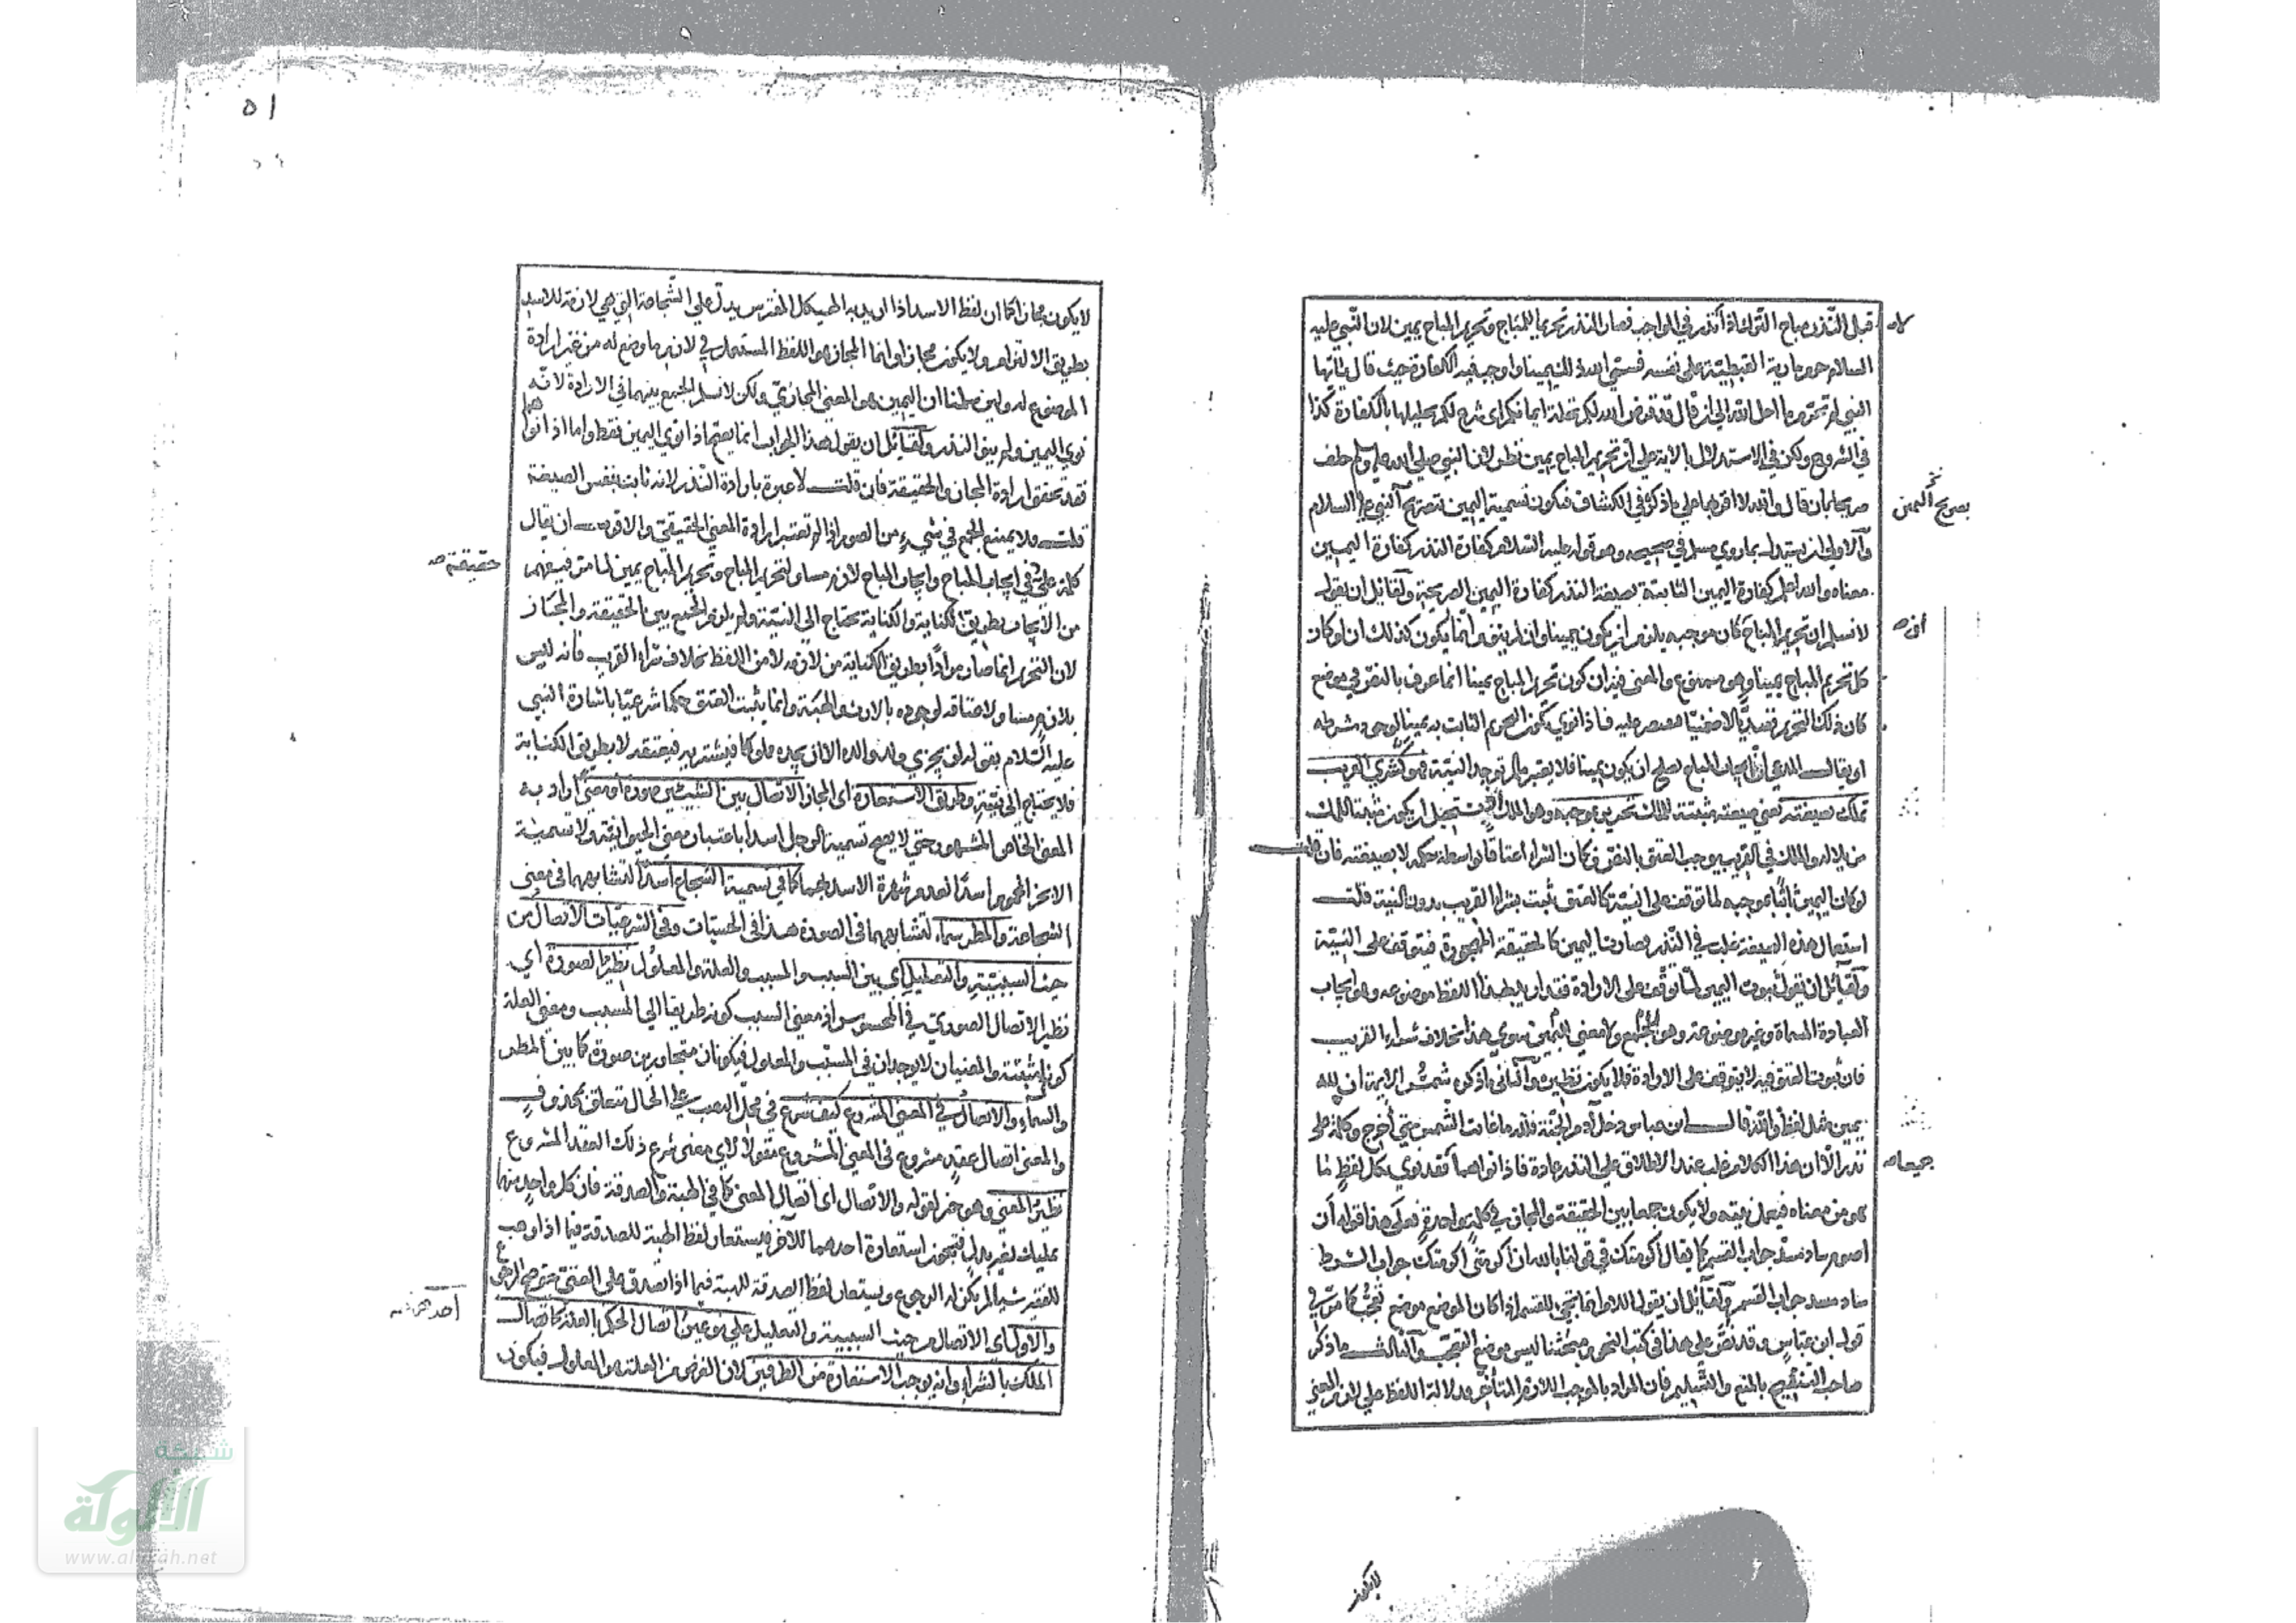 قبل النذر مباح الترك فاذا انذر في الواجب فصار النذر تحريما للمباح وتحريم المباح يمين لان النبي عليه
السلام حرم مارية القبطية على نفسه فسمى الله ذلك يمينا واوجب فيه الكفارة حيث قال يا ايها
النبي لم تحرم ما احل الله لك الى ان قال قد فرض الله لكم تحلة ايمانكم اى شرع لكم تحليلها بالكفارة كذا
في الشروح ولكن في الاستدلال بالاية على ان تحريم المباح يمين نظر لان النبي صلى الله عليه وسلم حلف
صريحا بان قال والله لا اقربها على ما ذكر في الكشاف فيكون تسمية اليمين بصريح النبي عليه السلام
والاولى ان يستدل بما روي مسلم في صحيحه وهو قوله عليه السلام كفارة النذر كفارة اليمين
معناه والله اعلم كفارة اليمين الثابتة بصيغة النذر كفارة اليمين الصريحة ولقائل ان يقول
لا نسلم ان تحريم المباح كان موجبه يلزم ان يكون يمينا وان لم ينو وانما يكون كذلك ان لو كان
كل تحريم المباح يمينا وهو ممنوع والمعنى فيه ان كون تحريم المباح يمينا انما عرف بالنص في موضع
كان ذلك التحريم قصديا لا ضمنيا فيقتصر عليه فاذا نوى يكون التحريم الثابت به يمينا لوجود شرطه
او يقال المدعى ان ايجاب المباح يصلح ان يكون يمينا فلا يعتبر ما لم توجد النية فهو كشرى القريب
تملك بصيغته يعني صيغته مثبتة للملك تحرير بموجبه وهو الملك يستحيل ان يكون مثبتا للملك
مزيلا له والملك في القريب يوجب العتق بالنص فكان الشراء اعتاقا بواسطة حكمه لا بصيغته فان قلت
لو كان اليمين ثابتا بموجبه لما توقف على النية كالعتق يثبت بشراء القريب بدون النية قلت
استعمال هذه الصيغة غلب في النذر فصارت اليمين كالحقيقة المهجورة فيتوقف على النية
ولقائل ان يقول ثبوت اليمين لما توقف على الارادة فقد اريد بهذا اللفظ موضوعه وهو ايجاب
العبادة المسماة وغير موضوعه وهو اليمين ولا معنى للجمع سوى هذا بخلاف شراء القريب
فان ثبوت العتق فيه لا يتوقف على الارادة فلا يكون نظيره والثاني ما ذكره شمس الائمة ان لله
يمين مثل لفظ والله قال ابن عباس دخل آدم الجنة فلله ما غابت الشمس حتى اخرج وكلمة على
نذر الا ان هذا الكلام غلب عند الاطلاق على النذر عادة فاذا نواهما فقد نوى بكل لفظ ما
هو من معناه فيعمل بنيته ولا يكون جمعا بين الحقيقة والمجاز في كلمة واحدة فعلى هذا قوله ان
اصوم ساد مسد جواب القسم كما يقال اكرمتك في قولنا بالله ان اكرمتني اكرمتك جواب الشرط
ساد مسد جواب القسم ولقائل ان يقول اللام انما تجيء للقسم اذا كان الموضع موضع تعجب كما مر في
قول ابن عباس وقد نص على هذا في كتب النحو ومبحثنا ليس موضع التعجب والثالث ما ذكر
صاحب التنقيح بالمنع والتسليم فان المراد بالموجب اللازم المتأخر فدلالة اللفظ على لازم المعنى
بصريح اليمين
ان
جميعا
لا يكون
٥١
لا يكون مجازا كما ان لفظ الاسد اذا اريد به الهيكل المفترس يدل على الشجاعة التي هي لازمة للاسد
بطريق الالتزام ولا يكون مجازا وانما المجاز هو اللفظ المستعمل في لازم ما وضع له من غير ارادة
الموضوع له ولئن سلمنا ان اليمين هو المعنى المجازي ولكن لا نسلم الجمع بينهما في الارادة لانه
نوى اليمين ولم ينو النذر ولقائل ان يقول هذا الجواب انما يصح اذا نوى اليمين فقط واما اذا نواهما
فقد تحقق ارادة المجاز والحقيقة فان قلت لا عبرة بارادة النذر لانه ثابت بنفس الصيغة
قلت فلا يمتنع الجمع في شيء من الصور اذا لم تعتبر ارادة المعنى الحقيقي والاقرب ان يقال
كلمة علي في ايجاب المباح وايجاب المباح لازم مساو لتحريم المباح وتحريم المباح يمين لما مر فيفهم
من الايجاب بطريق الكناية والكناية تحتاج الى النية ولم يلزم الجمع بين الحقيقة والمجاز
لان التحريم انما صار مرادا بطريق الكناية من لازمه لا من اللفظ بخلاف شراء القريب فانه ليس
بلازم مساو لاعتاقه لوجوده بالارث والهبة وانما يثبت العتق حكما شرعيا باشارة النبي
عليه السلام بقوله لن يجزي ولد والده الا ان يجده مملوكا فيشتريه فيعتقه لا بطريق الكناية
فلا يحتاج الى نيته وطريق الاستعارة اى المجاز الاتصال بين الشيئين صورة او معنى اراد به
المعنى الخاص المشهور حتى لا يصح تسمية الرجل اسدا باعتبار معنى الحيوانية ولا تسمية
الابخر المحموم اسدا لعدم شهرة الاسد بهما كما في تسمية الشجاع اسدا لتشابههما في معنى
الشجاعة والمطر سماء لتشابههما في الصورة هذا في الحسيات وفي الشرعيات الاتصال من
حيث السببية والتعليل اى بين السبب والمسبب والعلة والمعلول نظير الصورة اى
نظير الاتصال الصوري في المحسوس اذ معنى السبب كونه طريقا الى المسبب ومعنى العلة
كونها مثبتة والمعنيان لا يوجدان في المسبب والمعلول فيكونان متجاورين صورة كما بين المطر
والسماء والاتصال في المعنى المشروع كيف شرع في محل النصب على الحال متعلق بمحذوف
والمعنى اتصال عقد مشروع في المعنى المشروع مقولا لاي معنى شرع ذلك العقد المشروع
نظير المعنى وهو خبر لقوله والاتصال اى اتصال المعنى كما في الهبة والصدقة فان كل واحد منهما
تمليك بغير بدل فتجوز استعارة احدهما للآخر فيستعار لفظ الهبة للصدقة فيما اذا وهب
للفقير شيئا لم يكن له الرجوع ويستعار لفظ الصدقة للهبة فيما اذا تصدق على الغني يصح الرجوع
والاول اى الاتصال من حيث السببية والتعليل على نوعين اتصال الحكم بالعلة كاتصال
الملك بالشراء وانه يوجب الاستعارة من الطرفين لان الغرض من العلة هو المعلول فيكون
حقيقة